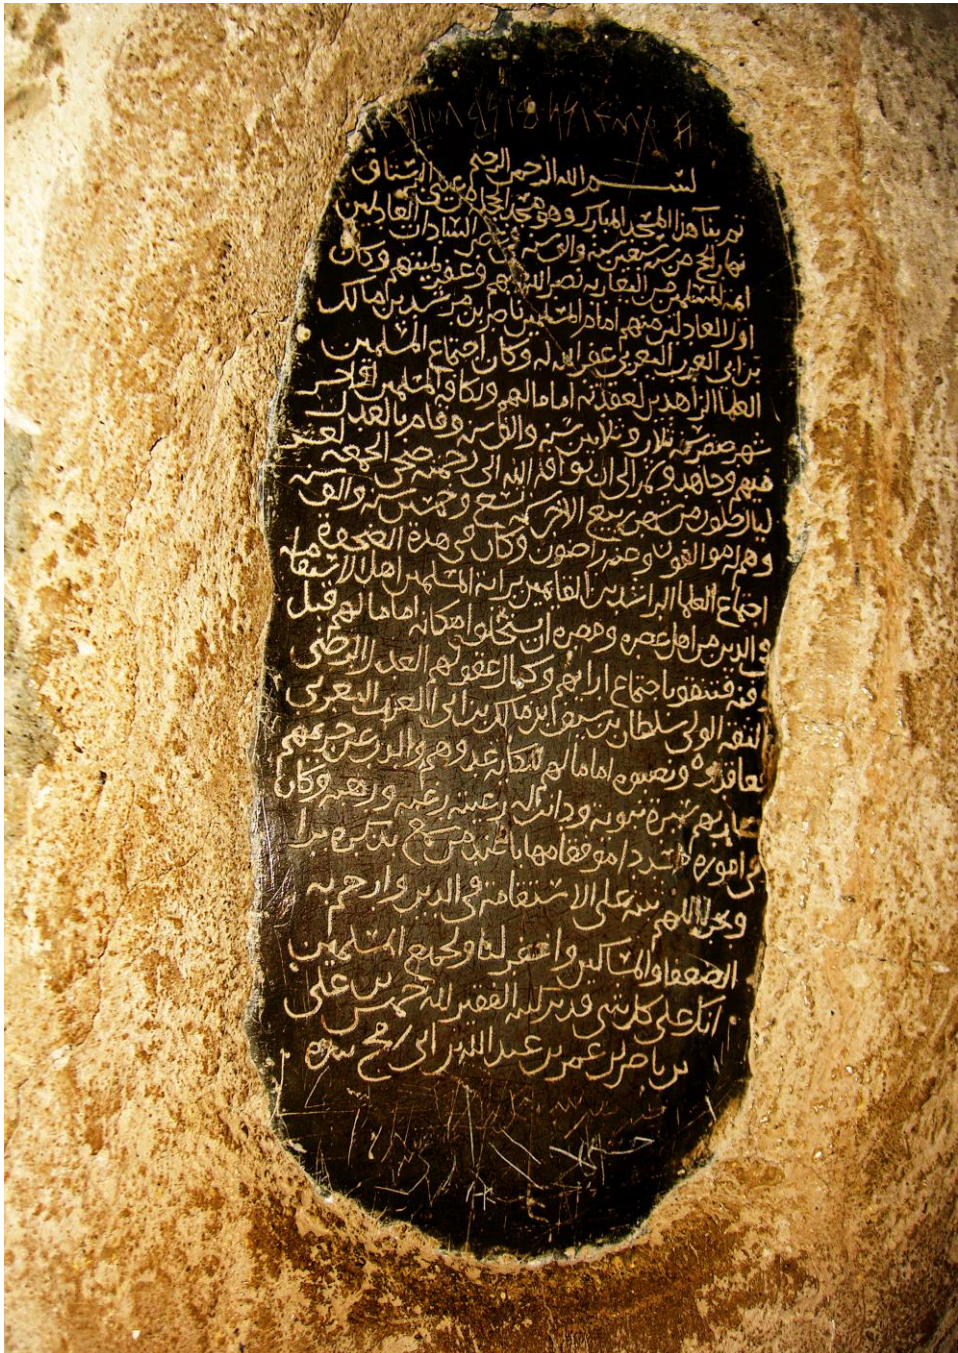 بسم الله الرحمن الرحيم
تم بنا هذا المسجد المبارك وهو مسجد من عيني الرستاق
نهار الحج من سنة سبعين سنة والف سنة في عصر السادات العادلين
ايمة المسلمين من اليعاربة نصر الله بهم وكان
اول العادلين منهم امام المسلمين ناصر بن مرشد بن مالك
بن ابي العرب اليعربي غفر الله له وكان اجتماع المسلمين
العلما الزاهدين لعقدته اماما لهم ولكافة المسلمين
شهر سنة ثلاث وثلاثين سنة والف سنة وقام بالعدل
فيهم وجاهد وشمر الى ان توافاه الله الى رحمته ضحى الجمعة لعشر
ليال خلون من شهر ربيع الاخر سنة تسع وخمسين سنة والف سنة
وهم له موالفون وعنه راضون وكان في هذه
اجتماع العلما الراشدين القايمين المسلمين اهل الاستقامة
والدين من اهل عصره ومصره ان يستخلفوا مكانه اماما لهم قبل
دفنه باجتماع ارايهم وكمال عقولهم العدل الرضي
الثقة الولي سلطان بن سيف ابن مالك بن ابي العرب اليعربي
فعاقدوه ونصبوه اماما لهم عدوهم والذب عن حريمهم
بهم سيرة نبوية ودانت له رعيته رغبة ورهبة وكان
في اموره موفقا مهابا عند من بذكره برا
وبحرا اللهم ثبته على الاستقامة في الدين وارحم به
الضعفا والمساكين واغفر لنا ولجميع المسلمين
انك على كل شي قدير كتبه الفقير لله خميس بن علي
بن ناصر بن عمر بن عبد الله بن ابي بيده